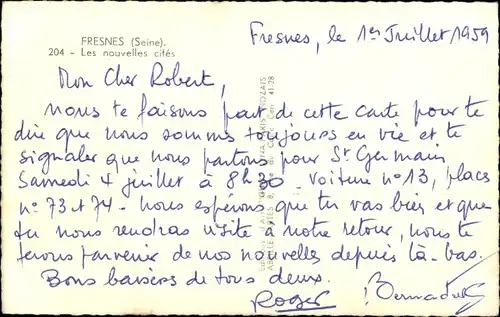 FRESNES (Seine).
204 - Les nouvelles cités
Fresnes, le 1er Juillet 1959
Mon Cher Robert,
nous te faisons part de cette carte pour te
dire que nous sommes toujours en vie et te
signaler que nous partons pour St Germain
Samedi 4 juillet à 8h30 - voiture n° 13, places
n° 73 et 74 - nous espérons que tu vas bien et que
tu nous rendras visite à notre retour, nous te
ferons parvenir de nos nouvelles depuis là-bas.
Bons baisers de tous deux.
Roger Bernadette